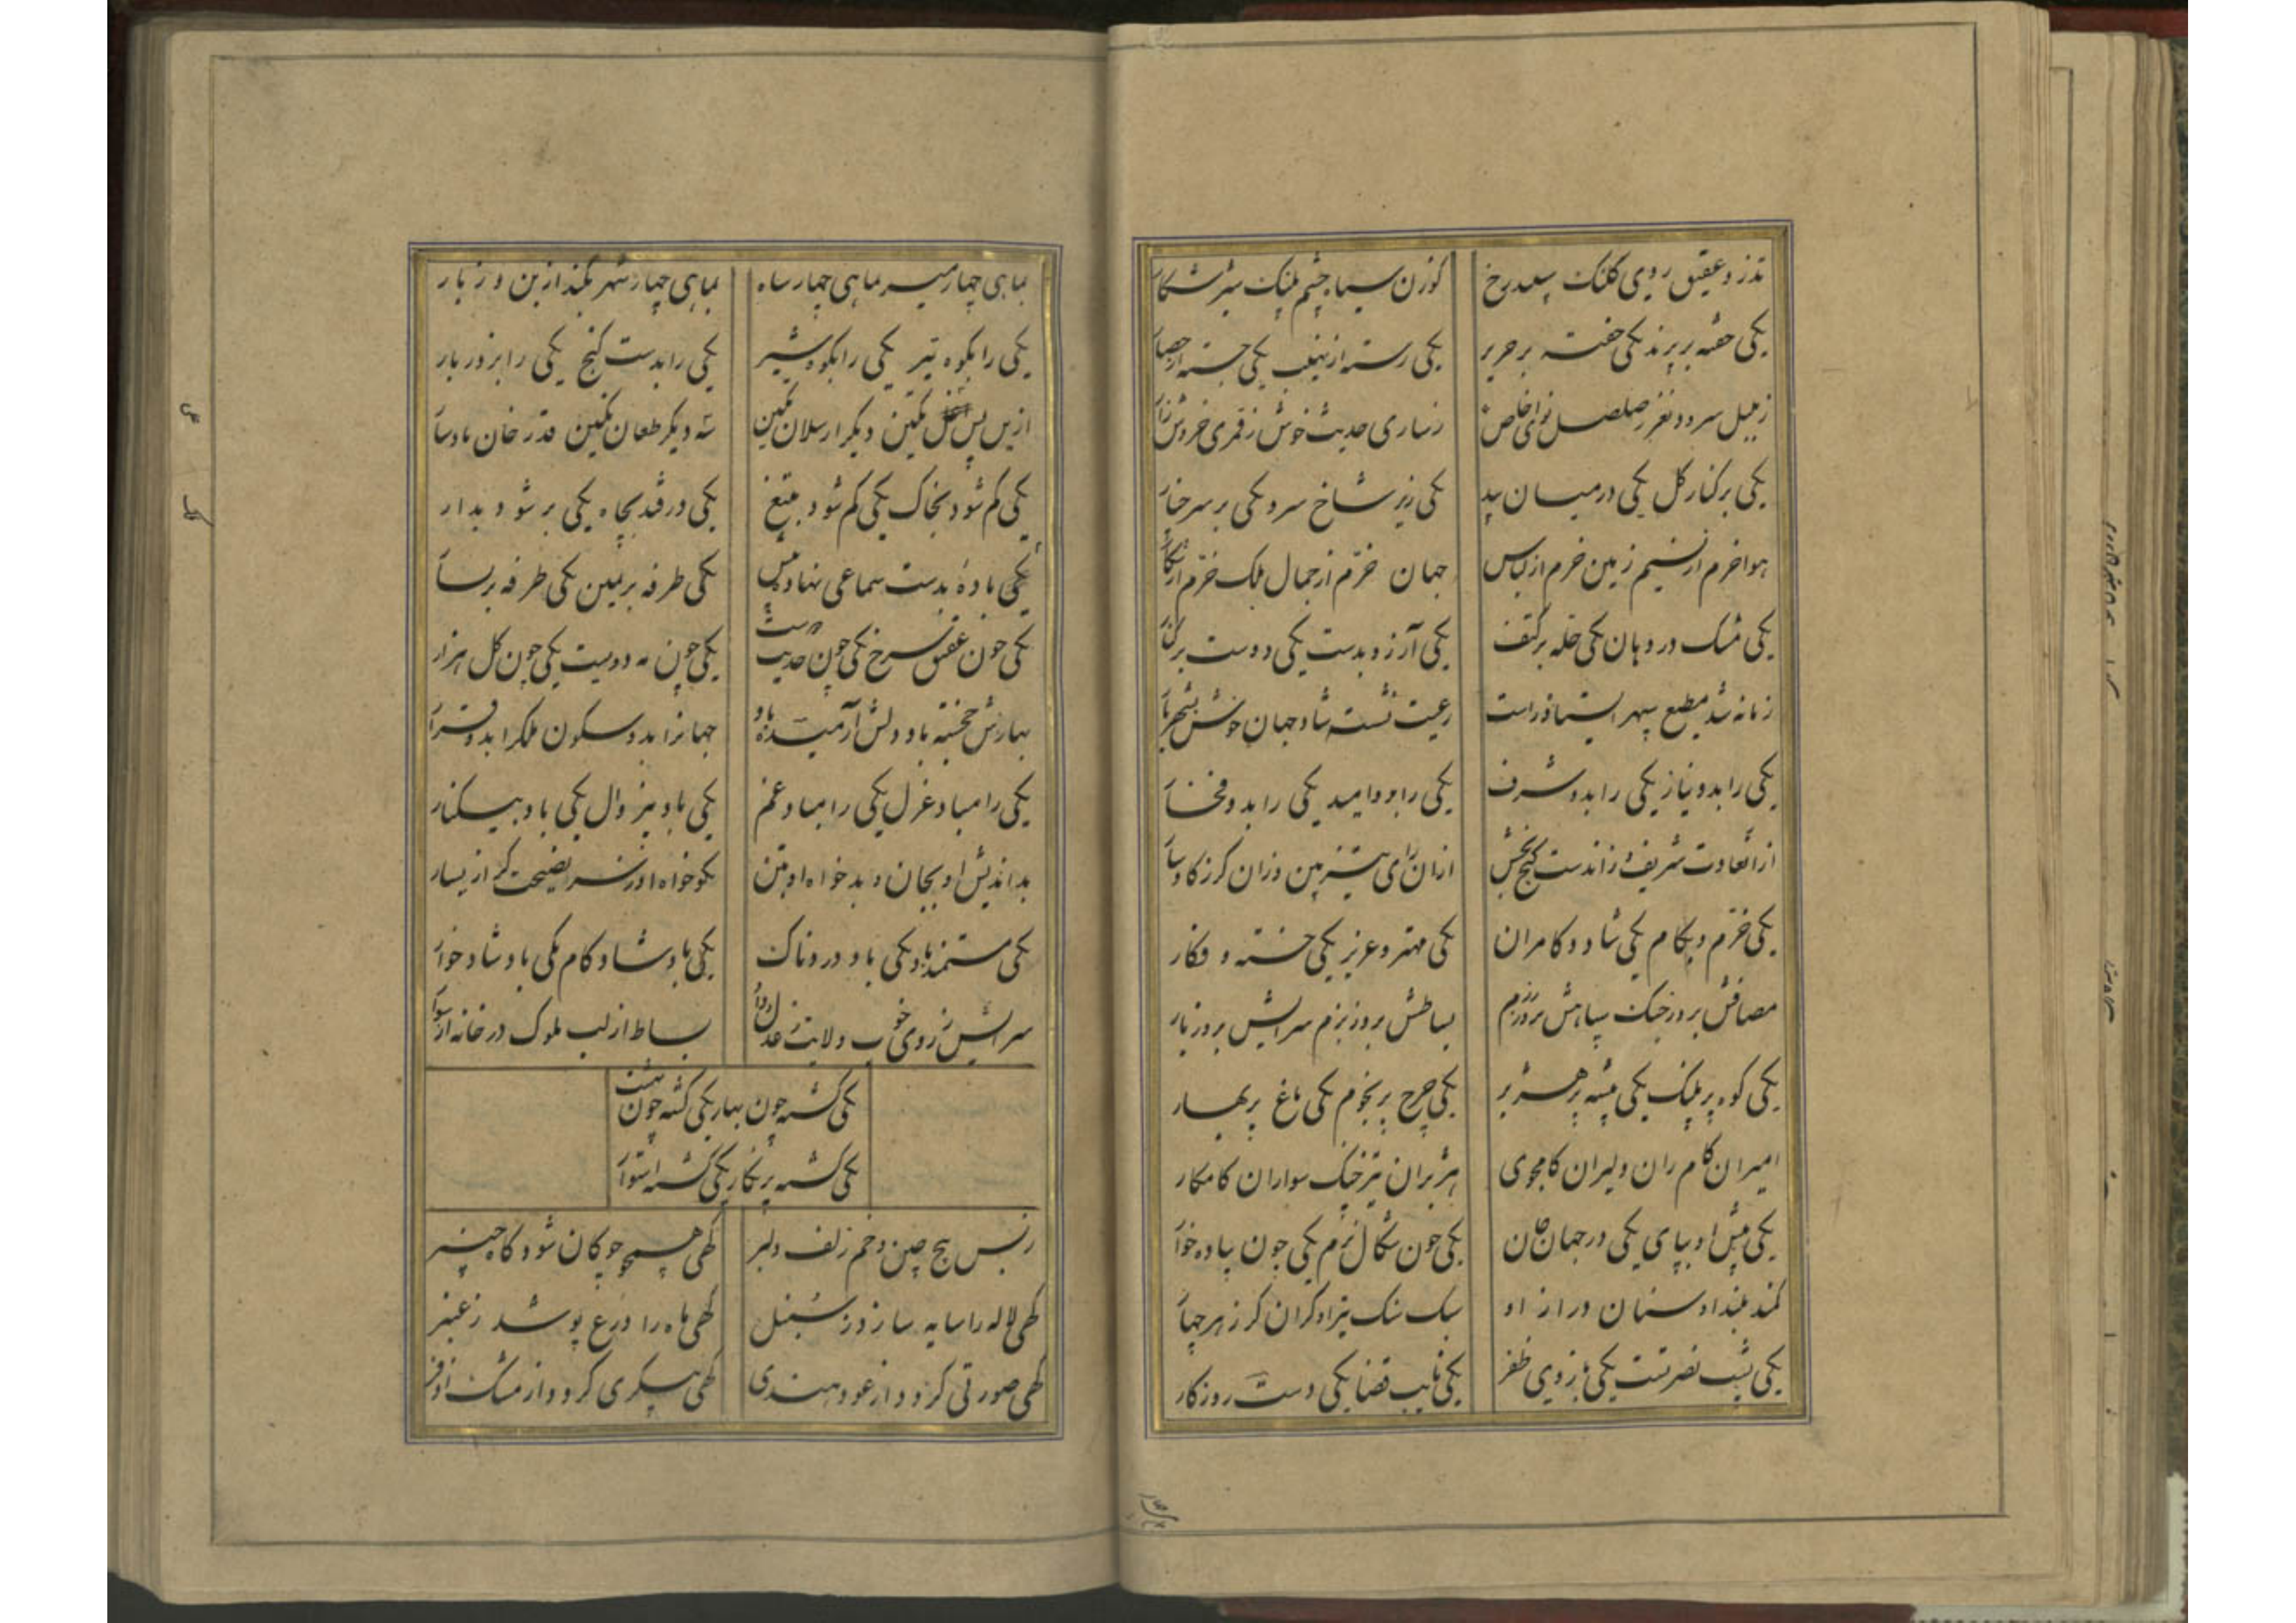 تذرو عقیق روی کلنک سپید رخ
کوزن سیاه چشم پلنک ستیزه کار
یکی خفته بر پرند یکی خفته بر حریر
یکی رسته از نهیب یکی جسته از حصار
ز بلبل سرود نغز ز صلصل نوای خاص
ز ساری حدیث خوش ز قمری خروش زار
یکی بر کنار کل یکی در میان بید
یکی زیر شاخ سرو یکی بر سر خار
هوا خرم از نسیم زمین خرم از لباس
جهان خرم از جمال ملک خرم از شکار
یکی مشک در دهان یکی حله بر کتف
یکی آرزو بدست یکی دوست بر کنار
زمانه شد مطیع سپهر ایستاد راست
رعیت نشسته شاد جهان خوش بشهریار
یکی را بدو نیاز یکی را بدو شرف
یکی را بدو امید یکی را بدو فخار
از آن عادت شریف وز آن دست کنج بخش
از آن رای تیز بین وز آن کرز کاوسار
یکی خرم و بکام یکی شاد و کامران
یکی مهتر و عزیز یکی خسته و فکار
مصافش بروز جنک سپاهش بروز رزم
بساطش بروز بزم سرایش بروز بار
یکی کوه پر پلنک یکی بیشه پر هزبر
یکی چرخ پر نجوم یکی باغ پر بهار
امیران کام ران دلیران کامجوی
هژبران تیز جنک سواران کامکار
یکی پیش او بپای یکی در جهان جهان
یکی چون شکال نرم یکی چون پیاده خوار
کمند بلند او سنان دراز او
سبک سنک تیر او کران کرز هر چهار
یکی پشت نصرتست یکی بازوی ظفر
یکی نایب قضا یکی دست روزکار
بماهی چهار میر بماهی چهار شاه
بماهی چهار شهر بکند از بن و ز بار
یکی را بکوه تیر یکی را بکوه شیر
یکی را بدست کنج یکی را بزور بار
ازین پس تکین دیکر ارسلان تکین
سه دیکر طغان تکین قدر خان بادسار
یکی کم شود بخاک یکی کم شود بتیغ
یکی در فتد بچاه یکی بر شود بدار
یکی باده بدست سماعی نهاده پیش
یکی طرفه بر یمین یکی طرفه بر یسار
یکی چون عقیق سرخ یکی چون حدیث دوست
یکی چون مه دویست یکی چون کل هزار
بهارش خجسته باد دلش آرمیده باد
جهانرا بدو سکون ملکرا بدو قرار
یکی را مباد عزل یکی را مباد غم
یکی باد بیزوال یکی باد بیکنار
بداندیش او بجان و بدخواه او بتن
نکوخواه او ز سر نصیحت کر از یسار
یکی مستمند باد یکی باد دردناک
یکی باد شاد کام یکی باد شاد خوار
سرایش ز روی خوب ولایت ز عدل و داد
بساط از لب ملوک در خانه از سوار
یکی کشته چون بهار یکی کشته چون بهشت
یکی کشته پر نکار یکی کشته استوار
ز بس پیچ و چین و خم زلف دلبر
کهی همچو چوکان شود کاه چنبر
کهی لاله را سایه سازد ز سنبل
کهی ماه را درع پوشد ز عنبر
کهی صورتی کردد از عود هندی
کهی پیکری کردد از مشک اذفر